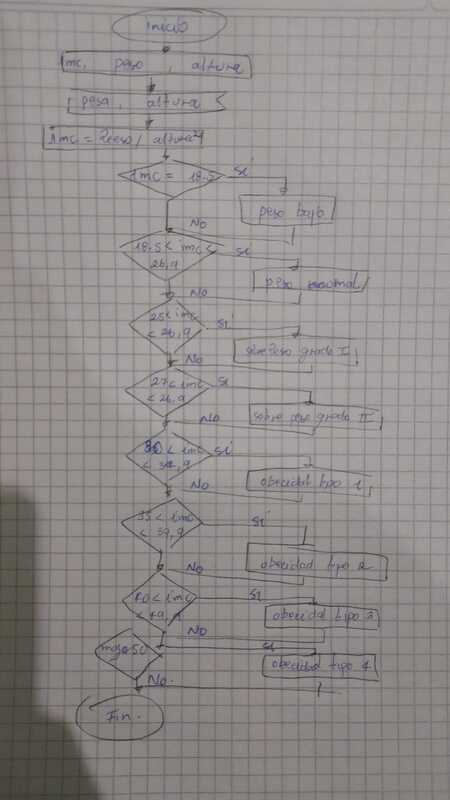 Inicio
Imc, peso, altura
peso, altura
Imc = Peso / altura^2
Imc = 18.5
Si
peso bajo
No
18.5 < imc <
26,9
Si
peso normal
No
25 < imc
< 26,9
Si
sobrepeso grado I
No
27 < imc
< 26,9
Si
sobre peso grado II
No
30 < imc
< 34,9
Si
obecidad tipo 1
No
35 < imc
< 39,9
Si
obecidad tipo 2
No
40 < imc
< 49,9
Si
obecidad tipo 3
No
50
Si
obecidad tipo 4
No.
Fin.